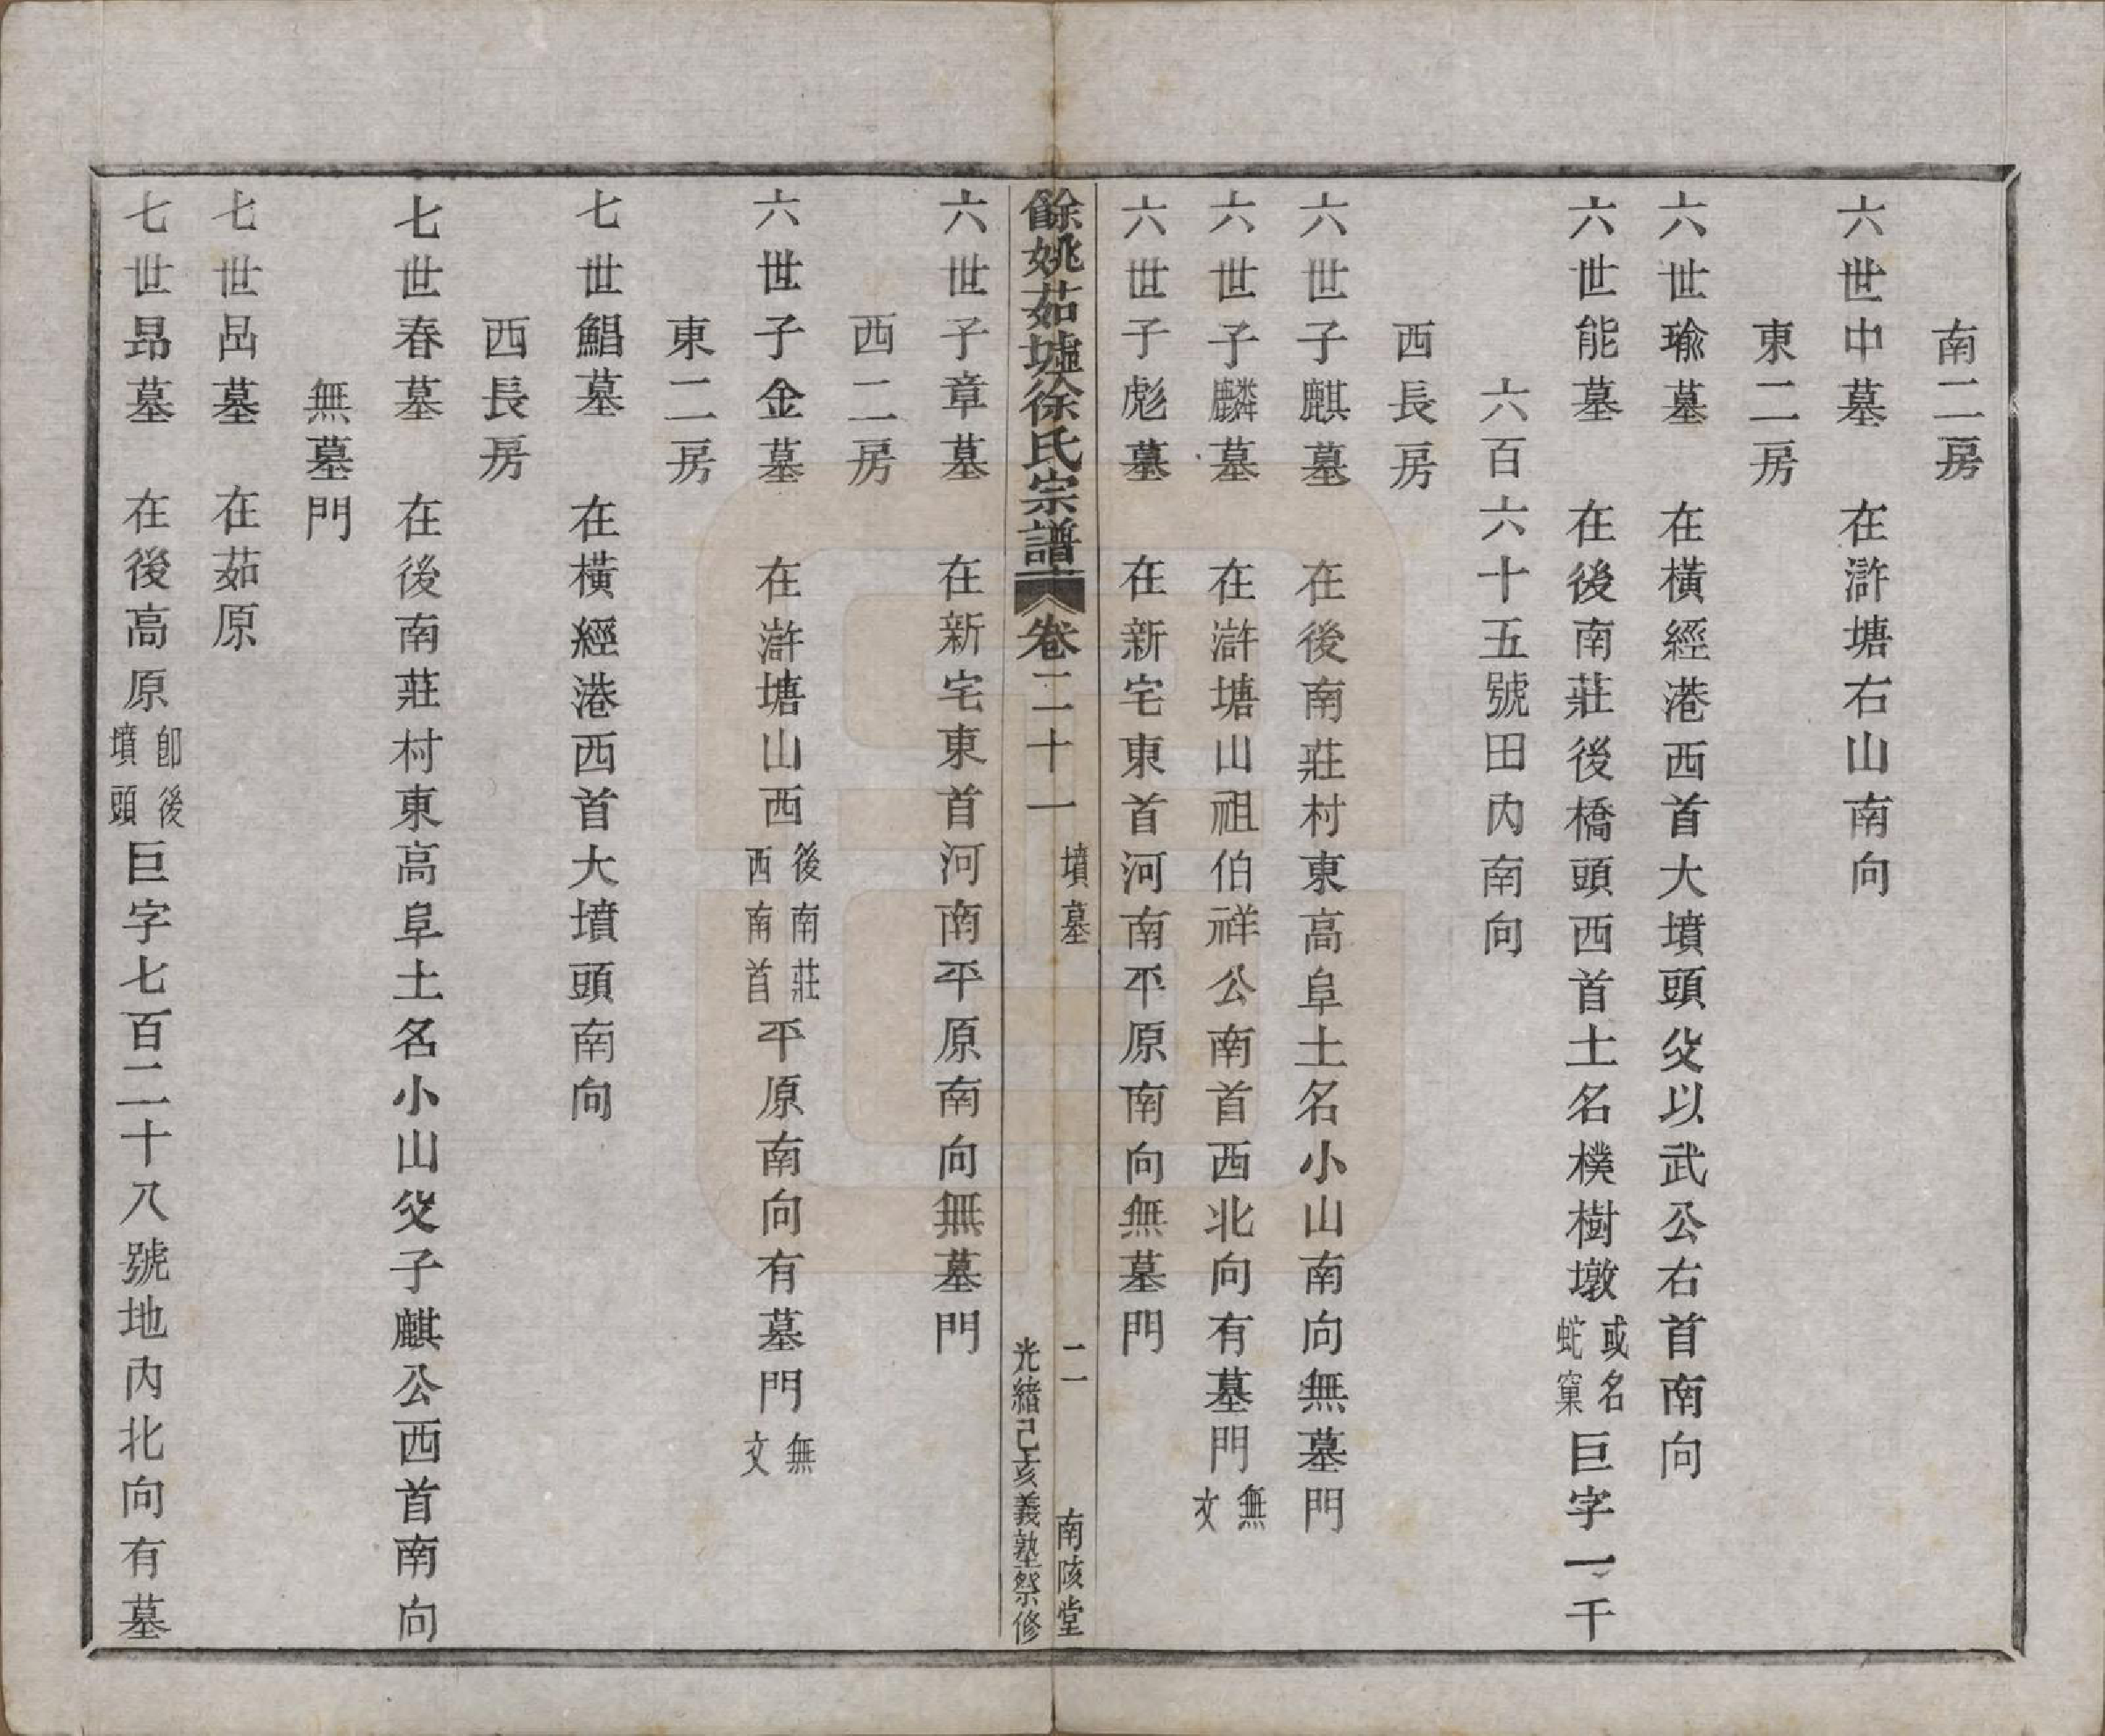 南二房
六世中墓　在滸塘右山南向
東二房
六世瑜墓　在橫經港西首大墳頭父以武公右首南向
六世能墓　在後南莊後橋頭西首土名樸樹墩或名蛇窠巨字一千
六百六十五號田內南向
西長房
六世子麒墓　在後南莊村東高阜土名小山南向無墓門
六世子麟墓　在滸塘山祖伯祥公南首西北向有墓門無文
六世子彪墓　在新宅東首河南平原南向無墓門
餘姚茹墟徐氏宗譜　卷二十一　墳墓　二　南陔堂
光緒己亥義塾祭修
六世子章墓　在新宅東首河南平原南向無墓門
西二房
六世子金墓　在滸塘山西後南莊西南首平原南向有墓門無文
東二房
七世鯧墓　在橫經港西首大墳頭南向
西長房
七世春墓　在後南莊村東高阜土名小山父子麒公西首南向
無墓門
七世喦墓　在茹原
七世昻墓　在後高原卽後墳頭巨字七百二十八號地內北向有墓